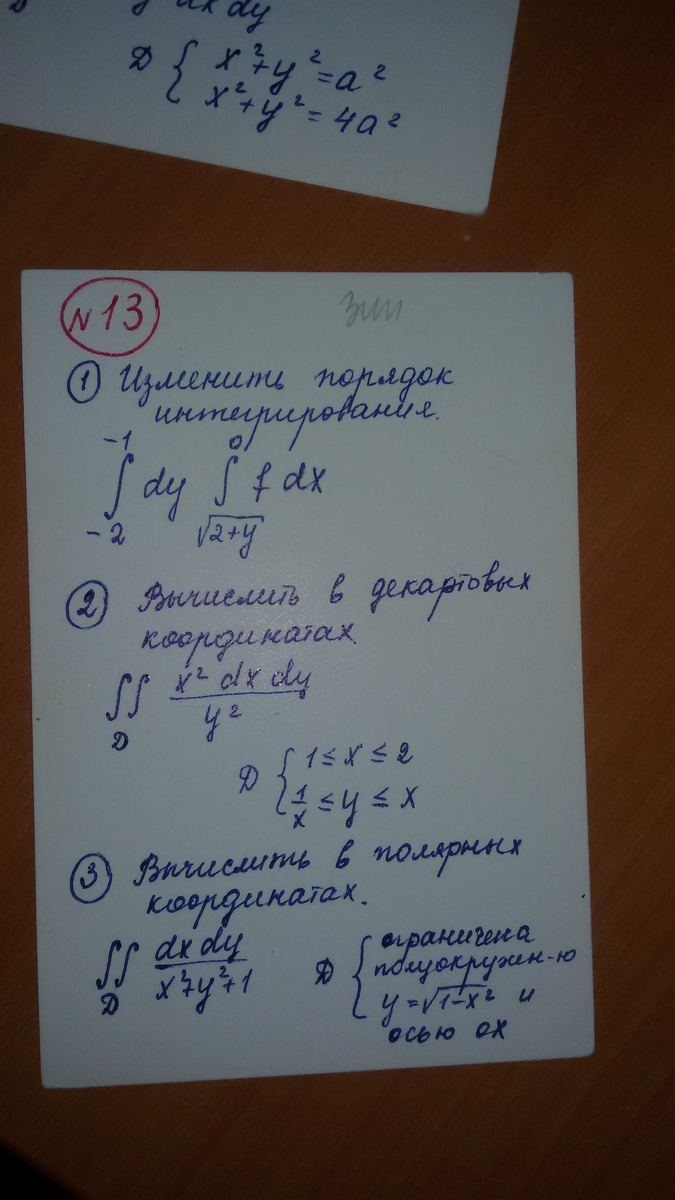 dx dy
D { x² + y² = a²
x² + y² = 4a²
N 13
зип
① Изменить порядок
интегрирования.
∫_{-2}^{-1} dy ∫_{√2+y}^{0} f dx
② Вычислить в декартовых
координатах.
∬_D x² dx dy / y²
D { 1 ≤ x ≤ 2
1/x ≤ y ≤ x
③ Вычислить в полярных
координатах.
∬_D dx dy / x² + y² + 1
D { ограничена
полуокружен-ю
y = √1-x² и
осью ox